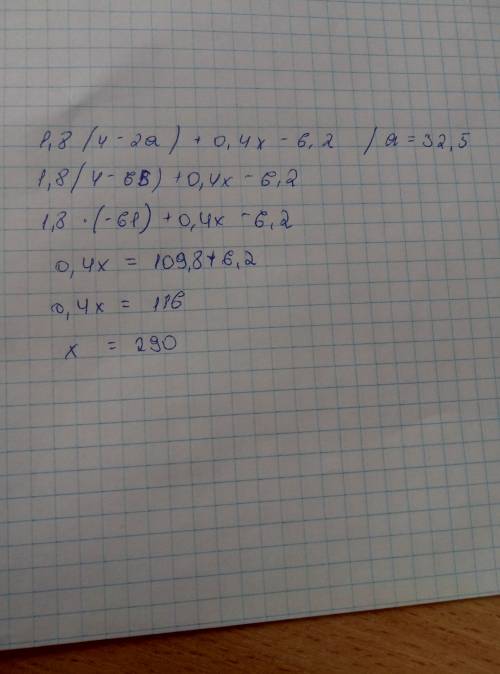 1,8 (4-2a) + 0,4x - 6,2 / a = 32,5
1,8 (4-65) + 0,4x - 6,2
1,8 · (-61) + 0,4x - 6,2
0,4x = 109,8+6,2
0,4x = 116
x = 290